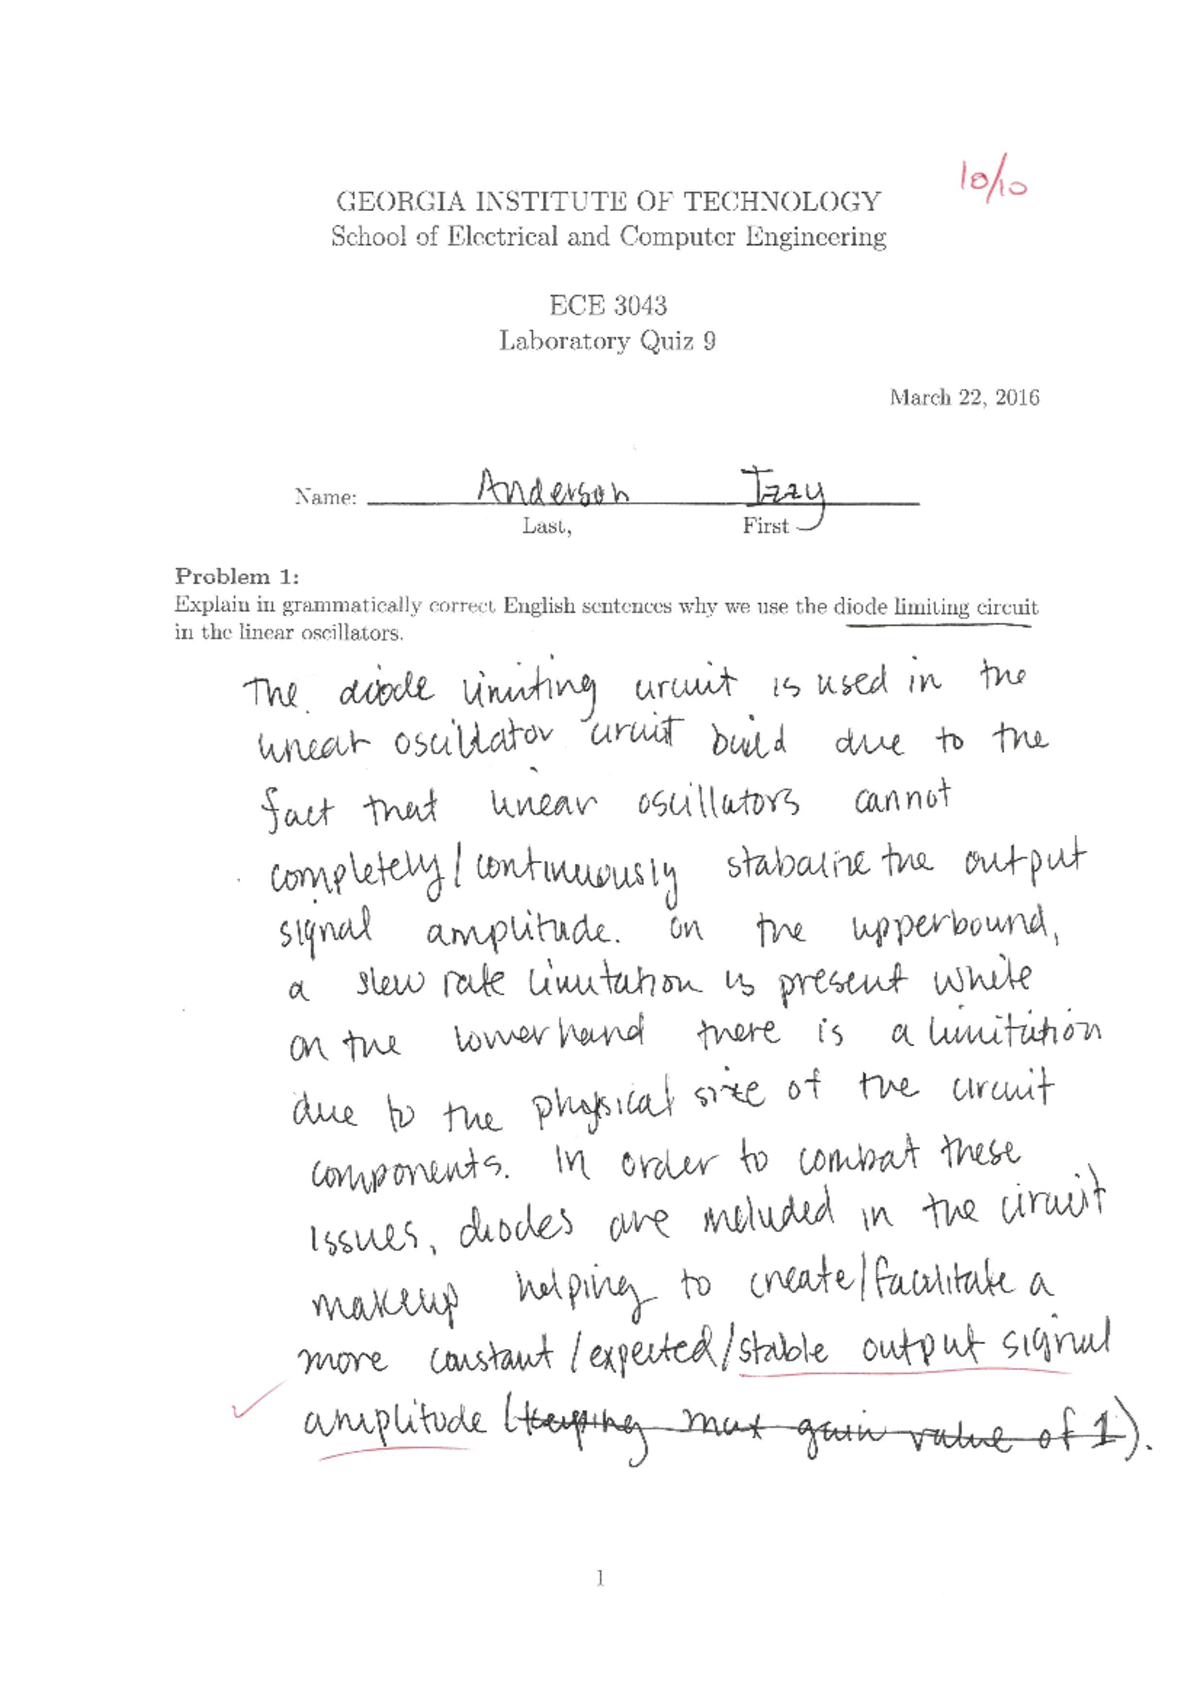 10/10
GEORGIA INSTITUTE OF TECHNOLOGY
School of Electrical and Computer Engineering
ECE 3043
Laboratory Quiz 9
March 22, 2016
Name: Anderson Izzy
Last, First
Problem 1:
Explain in grammatically correct English sentences why we use the diode limiting circuit
in the linear oscillators.
The diode limiting circuit is used in the
linear oscillator circuit build due to the
fact that linear oscillators cannot
completely/continuously stabalize the output
signal amplitude. On the upperbound,
a slew rate limitation is present while
on the lowerhand there is a limitation
due to the physical size of the circuit
components. In order to combat these
issues, diodes are included in the circuit
makeup helping to create/facilitate a
more constant/expected/stable output signal
amplitude (keeping max gain value of 1).
1